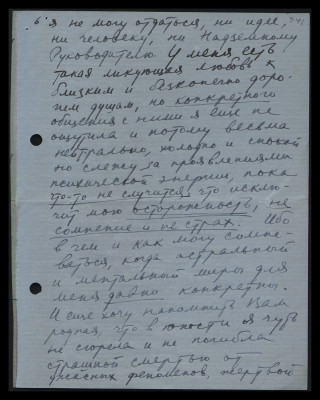 6. я не могу отдаться, ни идее, 241
ни человеку, ни Надземному
Руководителю. У меня есть
такая ликующая любовь к
близким и бесконечно доро-
гим душам, но конкретного
общения с ними я ещё не
ощутила и потому весьма
нейтрально, холодно и спокой
но слежу за проявлениями
психической энергии, пока
что-то не случится, что исклю-
чит мою осторожность, не
сомнение и не страх. Ибо
в чем и как могу сомне-
ваться, когда астральный
и ментальный миры для
меня давно конкретны.
И еще хочу напомнить Вам
родная, что в юности я чуть
не сгорела и не погибла
страшной смертью от
ужасных феноменов, жертвой